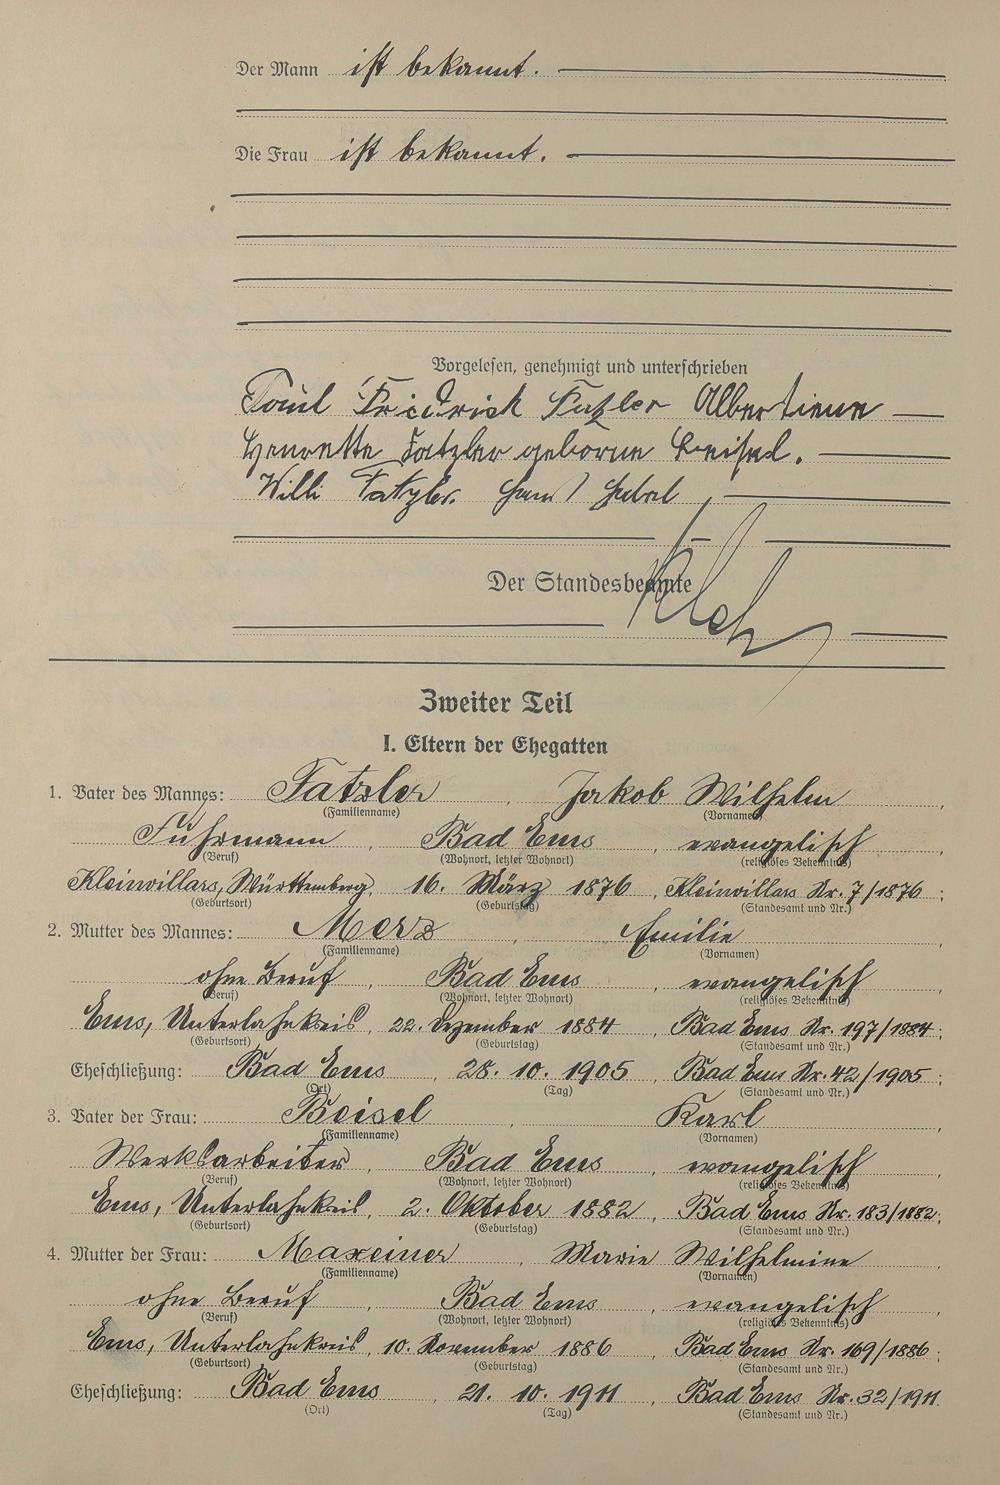 Der Mann ist bekannt.
Die Frau ist bekannt.
Vorgelesen, genehmigt und unterschrieben
Paul Friedrich Fatzler Albertiene
Henrette Fatzler geborne Beisel.
Willi Fatzler.
Der Standesbeamte
Zweiter Teil
I. Eltern der Ehegatten
1. Vater des Mannes: Fatzler, Jakob Wilhelm,
(Familienname) (Vornamen)
Fuhrmann, Bad Ems, evangelisch
(Beruf) (Wohnort, letzter Wohnort) (religiöses Bekenntnis)
Kleinvillars, Württemberg, 16. März 1876, Kleinvillars Nr. 7/1876;
(Geburtsort) (Geburtstag) (Standesamt und Nr.)
2. Mutter des Mannes: Merz, Emilie,
(Familienname) (Vornamen)
ohne Beruf, Bad Ems, evangelisch,
(Beruf) (Wohnort, letzter Wohnort) (religiöses Bekenntnis)
Ems, Unterlahnkreis, 22. Dezember 1884, Bad Ems Nr. 197/1884;
(Geburtsort) (Geburtstag) (Standesamt und Nr.)
Eheschließung: Bad Ems, 28. 10. 1905, Bad Ems Nr. 42/1905;
(Ort) (Tag) (Standesamt und Nr.)
3. Vater der Frau: Beisel, Karl,
(Familienname) (Vornamen)
Werksarbeiter, Bad Ems, evangelisch,
(Beruf) (Wohnort, letzter Wohnort) (religiöses Bekenntnis)
Ems, Unterlahnkreis, 2. Oktober 1882, Bad Ems Nr. 183/1882;
(Geburtsort) (Geburtstag) (Standesamt und Nr.)
4. Mutter der Frau: Maxeiner, Marie Wilhelmine,
(Familienname) (Vornamen)
ohne Beruf, Bad Ems, evangelisch,
(Beruf) (Wohnort, letzter Wohnort) (religiöses Bekenntnis)
Ems, Unterlahnkreis, 10. November 1886, Bad Ems Nr. 169/1886;
(Geburtsort) (Geburtstag) (Standesamt und Nr.)
Eheschließung: Bad Ems, 21. 10. 1911, Bad Ems Nr. 32/1911
(Ort) (Tag) (Standesamt und Nr.)